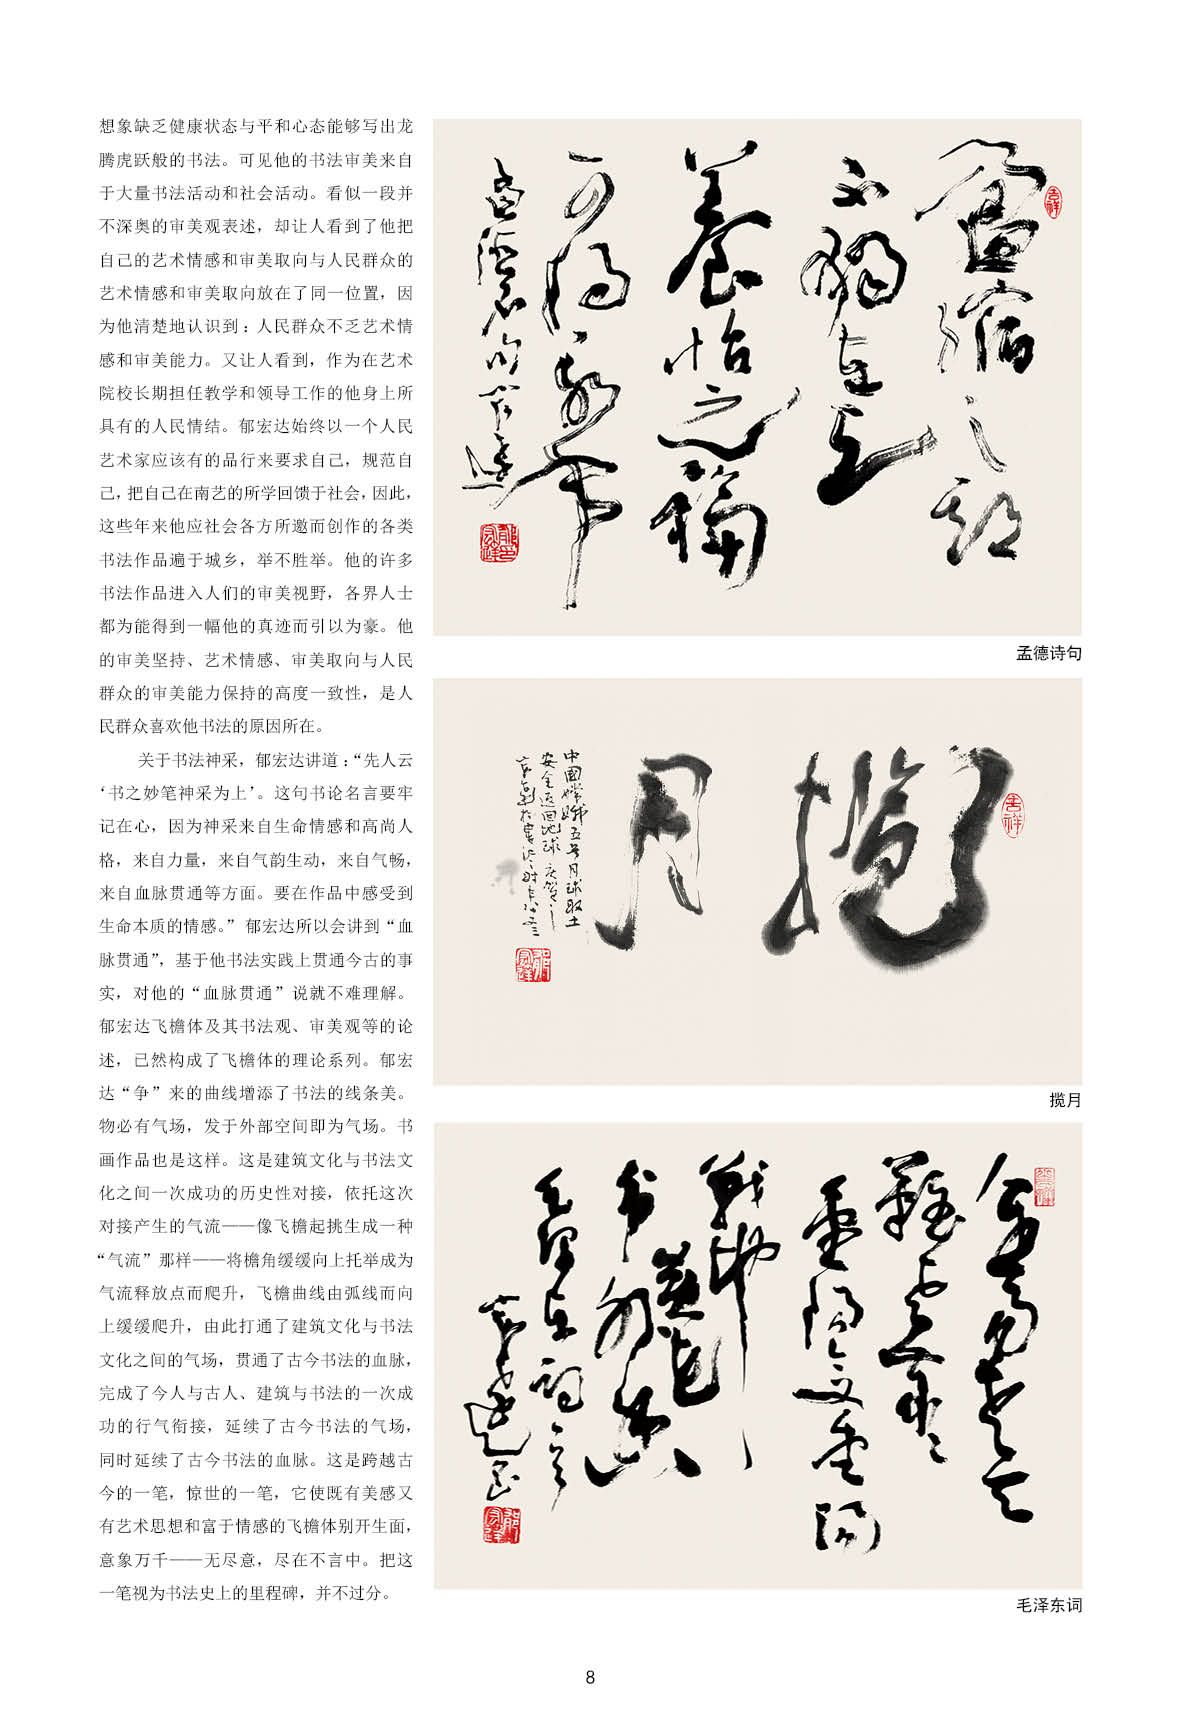 想象缺乏健康状态与平和心态能够写出龙
腾虎跃般的书法。可见他的书法审美来自
于大量书法活动和社会活动。看似一段并
不深奥的审美观表述，却让人看到了他把
自己的艺术情感和审美取向与人民群众的
艺术情感和审美取向放在了同一位置，因
为他清楚地认识到：人民群众不乏艺术情
感和审美能力。又让人看到，作为在艺术
院校长期担任教学和领导工作的他身上所
具有的人民情结。郁宏达始终以一个人民
艺术家应该有的品行来要求自己，规范自
己，把自己在南艺的所学回馈于社会，因此，
这些年来他应社会各方所邀而创作的各类
书法作品遍于城乡，举不胜举。他的许多
书法作品进入人们的审美视野，各界人士
都为能得到一幅他的真迹而引以为豪。他
的审美坚持、艺术情感、审美取向与人民
群众的审美能力保持的高度一致性，是人
民群众喜欢他书法的原因所在。
关于书法神采，郁宏达讲道：“先人云
‘书之妙笔神采为上’。这句书论名言要牢
记在心，因为神采来自生命情感和高尚人
格，来自力量，来自气韵生动，来自气畅，
来自血脉贯通等方面。要在作品中感受到
生命本质的情感。”郁宏达所以会讲到“血
脉贯通”，基于他书法实践上贯通今古的事
实，对他的“血脉贯通”说就不难理解。
郁宏达飞檐体及其书法观、审美观等的论
述，已然构成了飞檐体的理论系列。郁宏
达“争”来的曲线增添了书法的线条美。
物必有气场，发于外部空间即为气场。书
画作品也是这样。这是建筑文化与书法文
化之间一次成功的历史性对接，依托这次
对接产生的气流——像飞檐起挑生成一种
“气流”那样——将檐角缓缓向上托举成为
气流释放点而爬升，飞檐曲线由弧线而向
上缓缓爬升，由此打通了建筑文化与书法
文化之间的气场，贯通了古今书法的血脉，
完成了今人与古人、建筑与书法的一次成
功的行气衔接，延续了古今书法的气场，
同时延续了古今书法的血脉。这是跨越古
今的一笔，惊世的一笔，它使既有美感又
有艺术思想和富于情感的飞檐体别开生面，
意象万千——无尽意，尽在不言中。把这
一笔视为书法史上的里程碑，并不过分。
吉祥
盈缩之期
不独在天
养怡之福
可得永年
孟德诗句
吉祥
揽月
中國嫦娥五号月球取土
安全返回地球
揽月
今又重阳
战地黄花
毛泽东词
8